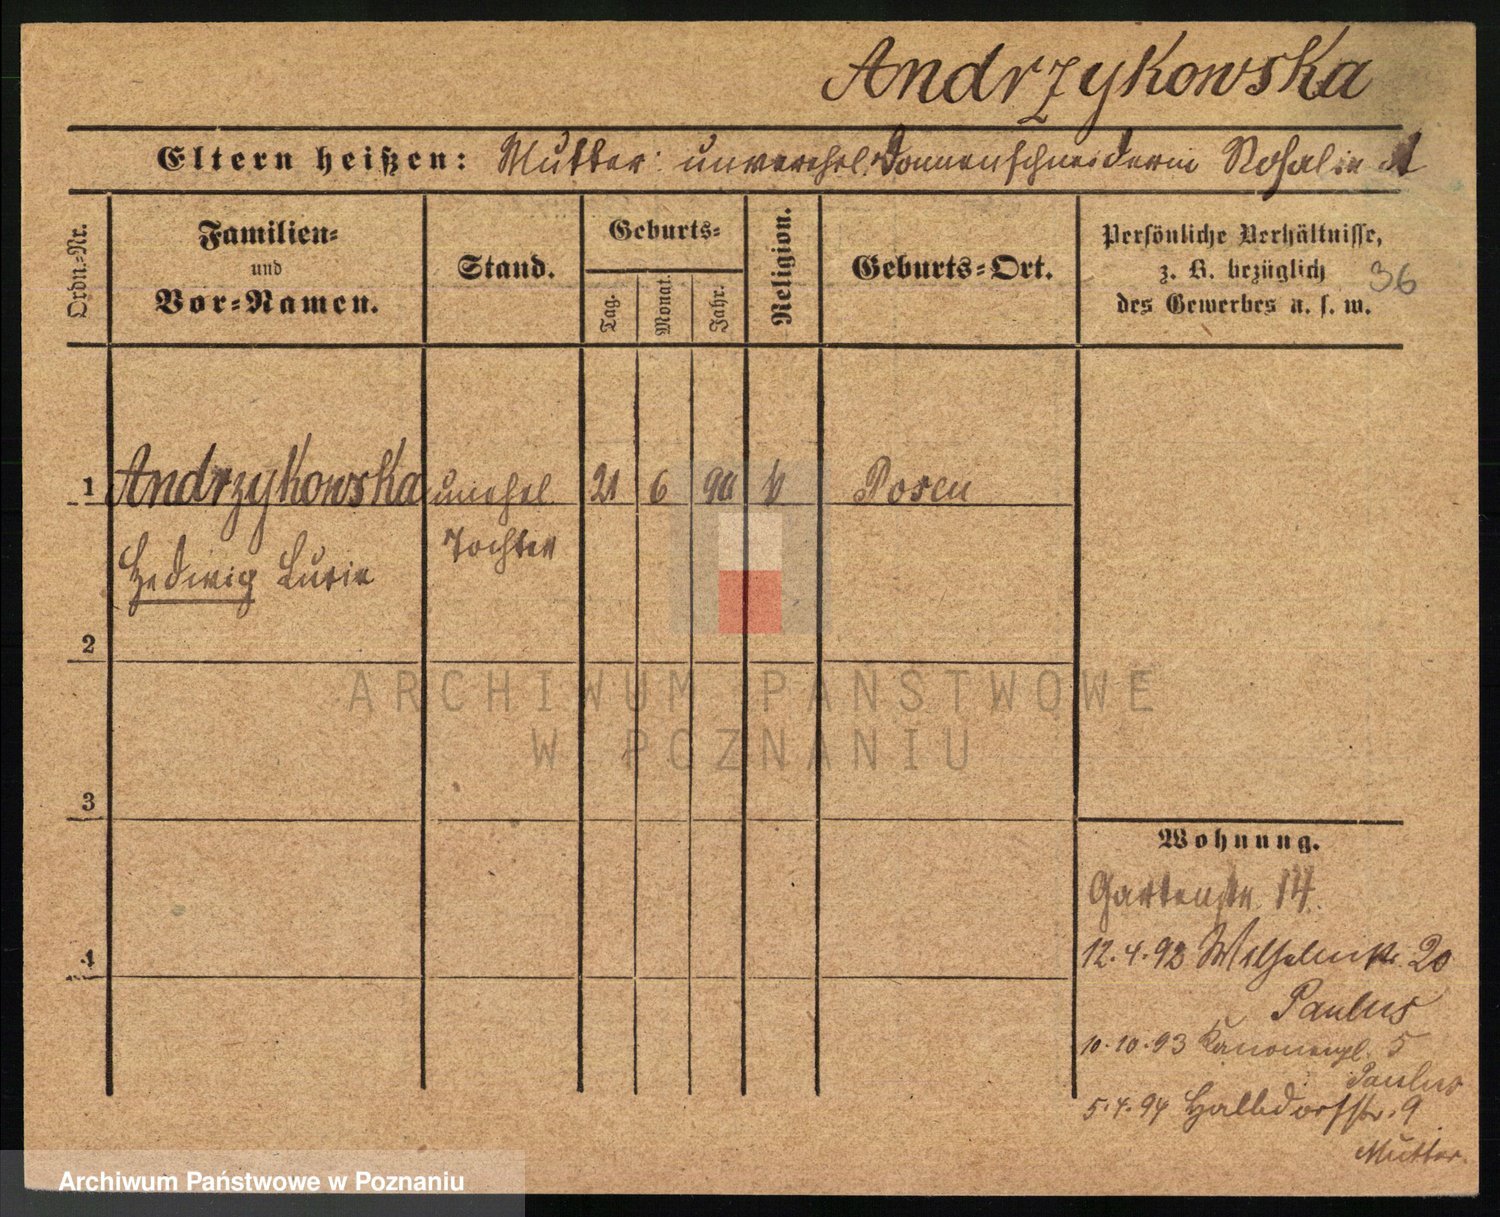 Andrzykowska
Eltern heißen: Mutter: unverehel. Damenschneiderin Rosalie A
Ordn.-Nr.
Familien-
und
Vor-Namen.
Stand.
Geburts-
Tag.
Monat.
Jahr.
Religion.
Geburts-Ort.
Persönliche Verhältnisse,
z. B. bezüglich
des Gewerbes u. s. w.
36
1 Andrzykowska unehel. 21 6 90 k Posen
Tochter
Hedwig Lucie
2
3
4
Wohnung.
Gartenstr. 14.
12.4.92 Wilhelmstr. 20
Paulus
10.10.93 Kanonenpl. 5
Paulus
5.4.94 Halbdorfstr. 9
Mutter.
ARCHIWUM PAŃSTWOWE
W POZNANIU
Archiwum Państwowe w Poznaniu